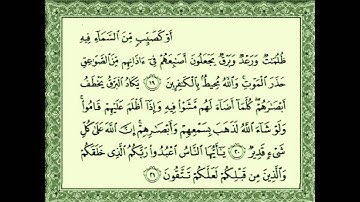 أَوْ كَصَيِّبٍ مِّنَ السَّمَآءِ فِيهِ
ظُلُمَٰتٌ وَرَعْدٌ وَبَرْقٌ يَجْعَلُونَ أَصَٰبِعَهُمْ فِىٓ ءَاذَانِهِم مِّنَ الصَّوَٰعِقِ
حَذَرَ الْمَوْتِ وَاللَّهُ مُحِيطٌۢ بِالْكَٰفِرِينَ ١٩ يَكَادُ الْبَرْقُ يَخْطَفُ
أَبْصَٰرَهُمْ كُلَّمَآ أَضَآءَ لَهُم مَّشَوْا۟ فِيهِ وَإِذَآ أَظْلَمَ عَلَيْهِمْ قَامُوا۟
وَلَوْ شَآءَ اللَّهُ لَذَهَبَ بِسَمْعِهِمْ وَأَبْصَٰرِهِمْ إِنَّ اللَّهَ عَلَىٰ كُلِّ
شَىْءٍ قَدِيرٌ ٢٠ يَٰٓأَيُّهَا النَّاسُ اعْبُدُوا۟ رَبَّكُمُ الَّذِى خَلَقَكُمْ
وَالَّذِينَ مِن قَبْلِكُمْ لَعَلَّكُمْ تَتَّقُونَ ٢١